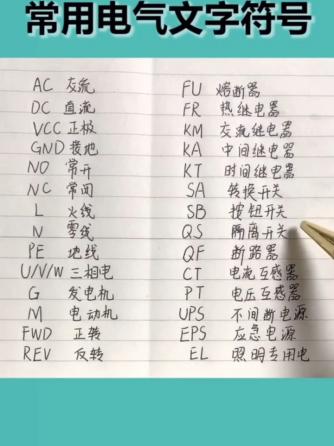 常用电气文字符号
AC 交流
DC 直流
VCC 正极
GND 接地
NO 常开
NC 常闭
L 火线
N 零线
PE 地线
U/V/W 三相电
G 发电机
M 电动机
FWD 正转
REV 反转
FU 熔断器
FR 热继电器
KM 交流继电器
KA 中间继电器
KT 时间继电器
SA 转换开关
SB 按钮开关
QS 隔离开关
QF 断路器
CT 电流互感器
PT 电压互感器
UPS 不间断电源
EPS 应急电源
EL 照明专用电